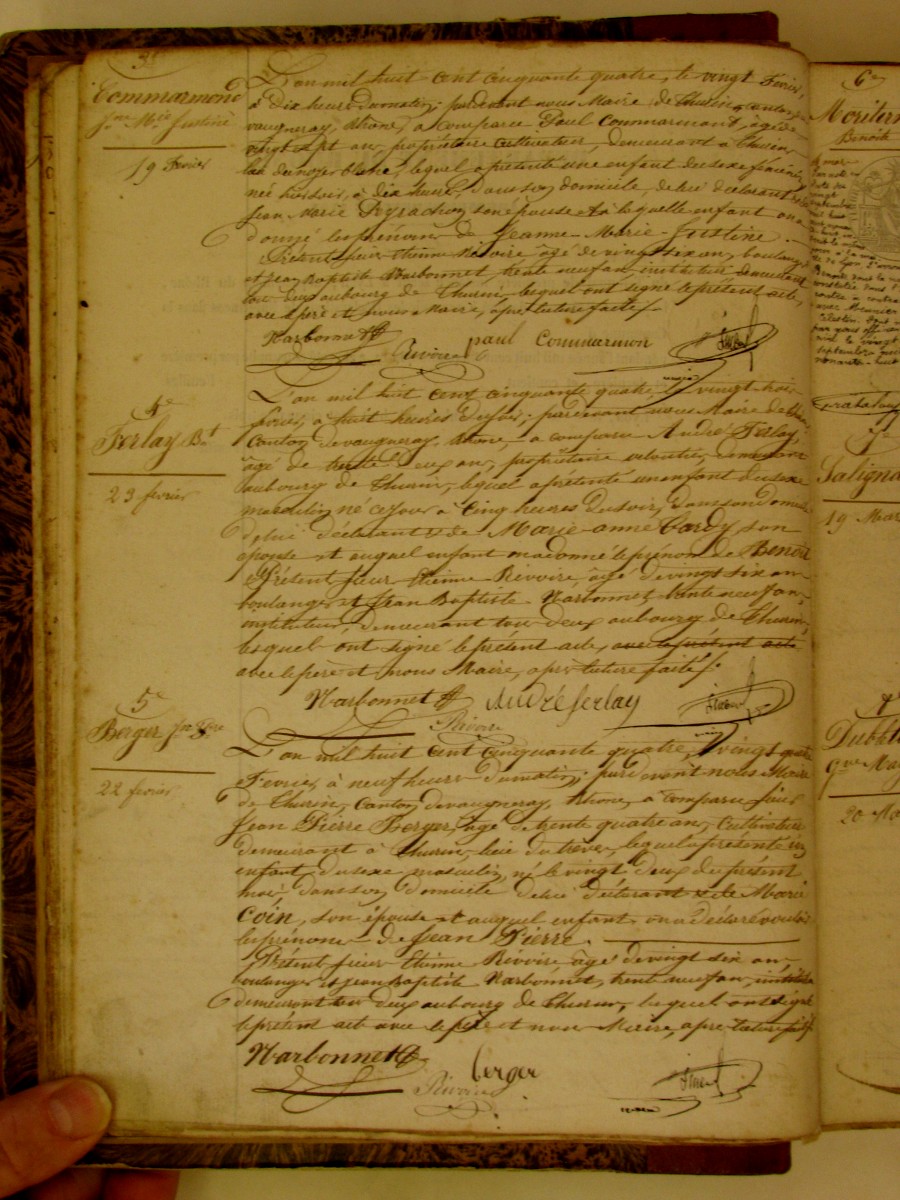 3e
Commarmond
Jne Mie Justine
19 Fevrier
L'an mil huit cent cinquante quatre, le vingt Fevrier,
à dix heures du matin; pardevant nous Maire de Thurin, canton de
vaugneray, Rhône, a comparu Paul Commarmont, âgé de
vingt sept an, propriétaire cultivateur, demeurant à Thurin,
lieu du noyer blanc, lequel a présenté une enfant du sexe féminin,
née hier soir, à dix heures, dans son domicile, de lui déclarant et de
Jean Marie Peyrachon, son épouse et à laquelle enfant on a
donné les prénoms de Jeanne-Marie-Justine.
Présent sieur Etienne Rivoire âgé de vingt six an, boulanger
et Jean Baptiste Narbonnet, trente neuf an, instituteur demeurant
tou deux au bourg de Thurin, lesquel ont signé le présent acte,
avec le père et nous Maire, apre lecture faite.
Narbonnet Rivoire paul Commarmon
4e
Ferlay Bt
23 fevrier
L'an mil huit cent cinquante quatre, le vingt trois
fevrier, à huit heures du soir; pardevant nous Maire de Thurin
Canton de vaugneray, Rhône, a comparu André Ferlay,
âgé de trente deux an, propriétaire, demeurant
au bourg de Thurin, lequel a présenté un enfant du sexe
masculin, né ce jour à Cinq heures du soir, dans son domicile
de lui déclarant et de Marie-anne Cardy, son
epouse et auquel enfant on a donné le prénom de Benoit
Présent sieur Etienne Rivoire, âgé de vingt six an
boulanger et Jean Baptiste Narbonnet, trente neuf an,
instituteur, demeurant tou deux au bourg de Thurin,
lesquel ont signé le présent acte, avec le présent acte
avec le père et nous Maire, apre lecture faite.
Narbonnet André ferlay
Rivoire
5e
Berger Jn Prre
22 fevrier
L'an mil huit cent cinquante quatre, le vingt quatre
Fevrier, à neuf heures du matin; pardevant nous Maire
de Thurin, Canton de vaugneray, Rhône, a comparu sieur
Jean Pierre Berger, âgé de trente quatre an, Cultivateur
demeurant à Thurin, lieu du trever, lequel a présenté un
enfant, du sexe masculin, né le vingt deux du présent
moi dans son domicile de lui déclarant et de Marie
Coin, son épouse et auquel enfant on a déclaré vouloir
les prénoms de Jean Pierre.
Présent sieur Etienne Rivoire âgé de vingt six an
boulanger et Jean Baptiste Narbonnet, trente neuf an, instituteur
demeurant tou deux au bourg de Thurin, lesquel ont signé
le présent acte avec le père et nous Maire, apre lecture faite.
Narbonnet berger
Rivoire
6e
Benoite
7e
Salignat
19 Mar
20 Ma